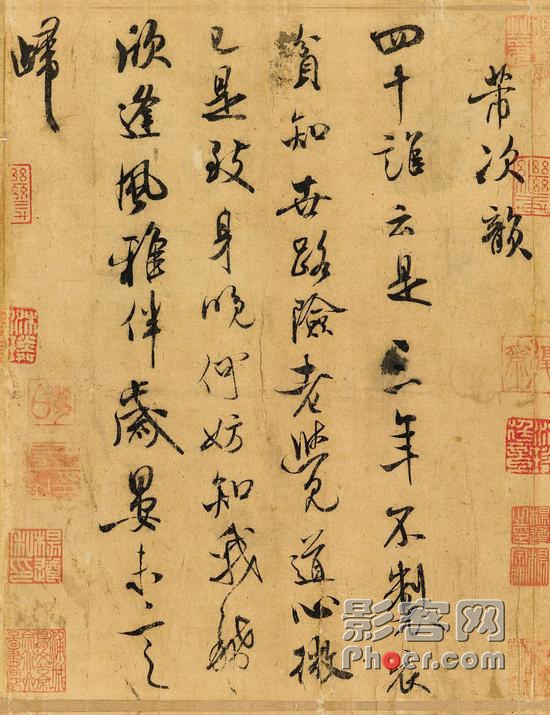 帶次韻
四十誰云是三年不制衣
貧知世路險老覺道心微
已是致身晚何妨知我稀
欣逢風雅伴歲晏未言
歸
影客网
Phoer.com